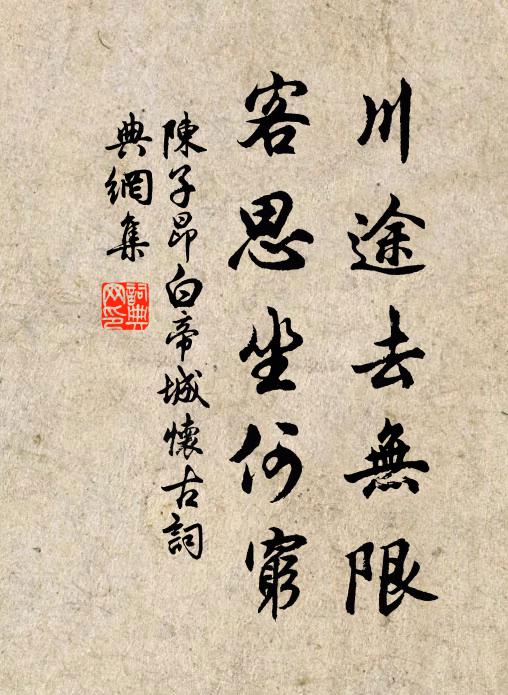 川途去無限
客思坐何窮
陳子昂白帝城懷古詞
典網集
詞典
网印